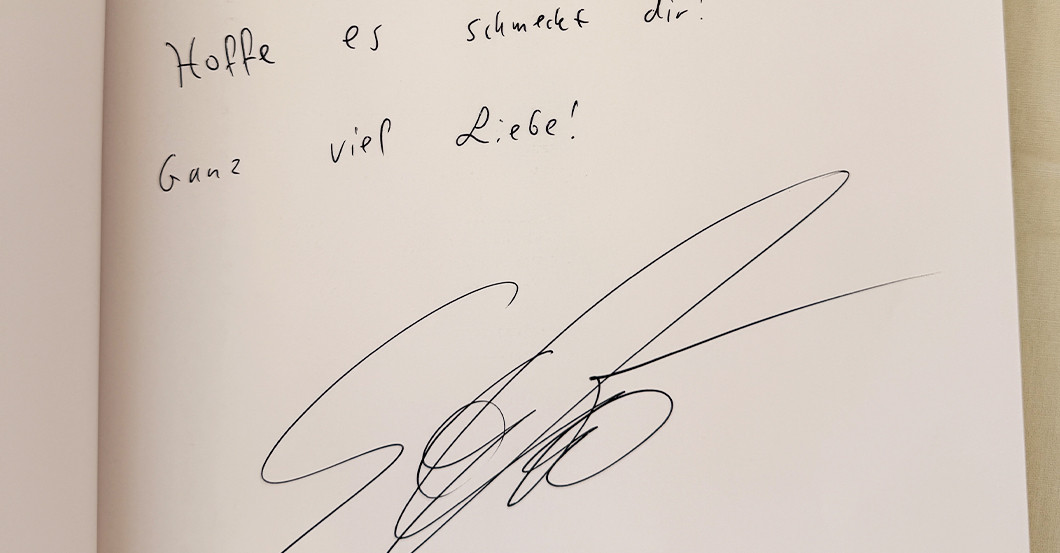 Hoffe es schmeckt dir!
Ganz viel Liebe!